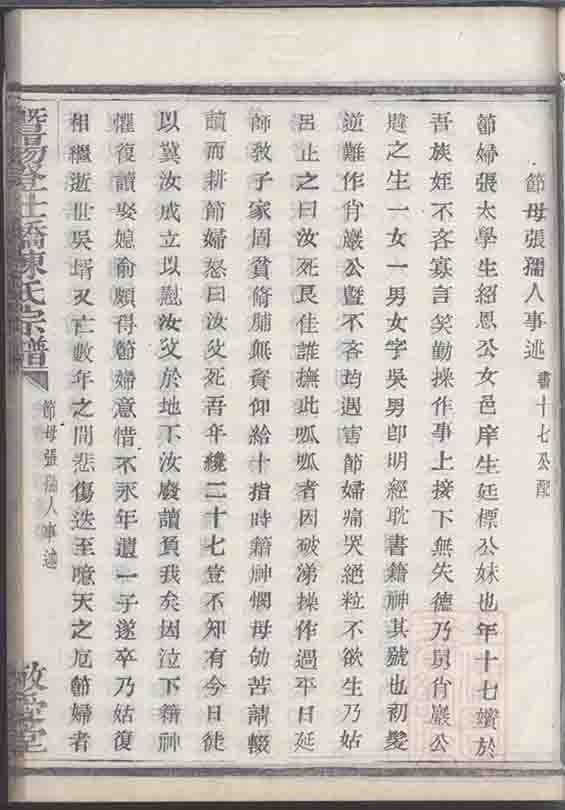 節母張孺人事述 書十七公配
節婦張太學生紹恩公女邑庠生廷標公妹也年十七嬪於
吾族姪不吝寡言笑勤操作事上接下無失德乃舅肖巖公
尅之生一女一男女字吳男卽明經耽書籍神其號也初髮
逆難作肖巖公曁不吝均遇害節婦痛哭絕粒不欲生乃姑
呂止之曰汝死良佳誰撫此呱呱者因破涕操作過平日延
師敎子家固貧脩脯無資仰給十指時籍神憫母劬苦請輟
讀而耕節婦怒曰汝父死吾年纔二十七豈不知有今日徒
以冀汝成立以慰汝父於地下汝廢讀負我矣因泣下籍神
懼復讀娶媳俞頗得節婦意惜不永年遺一子遂卒乃姑復
相繼逝世吳壻又亡數年之間悲傷迭至噫天之厄節婦者
暨陽登仕橋陳氏宗譜
節母張孺人事述
敬愛堂